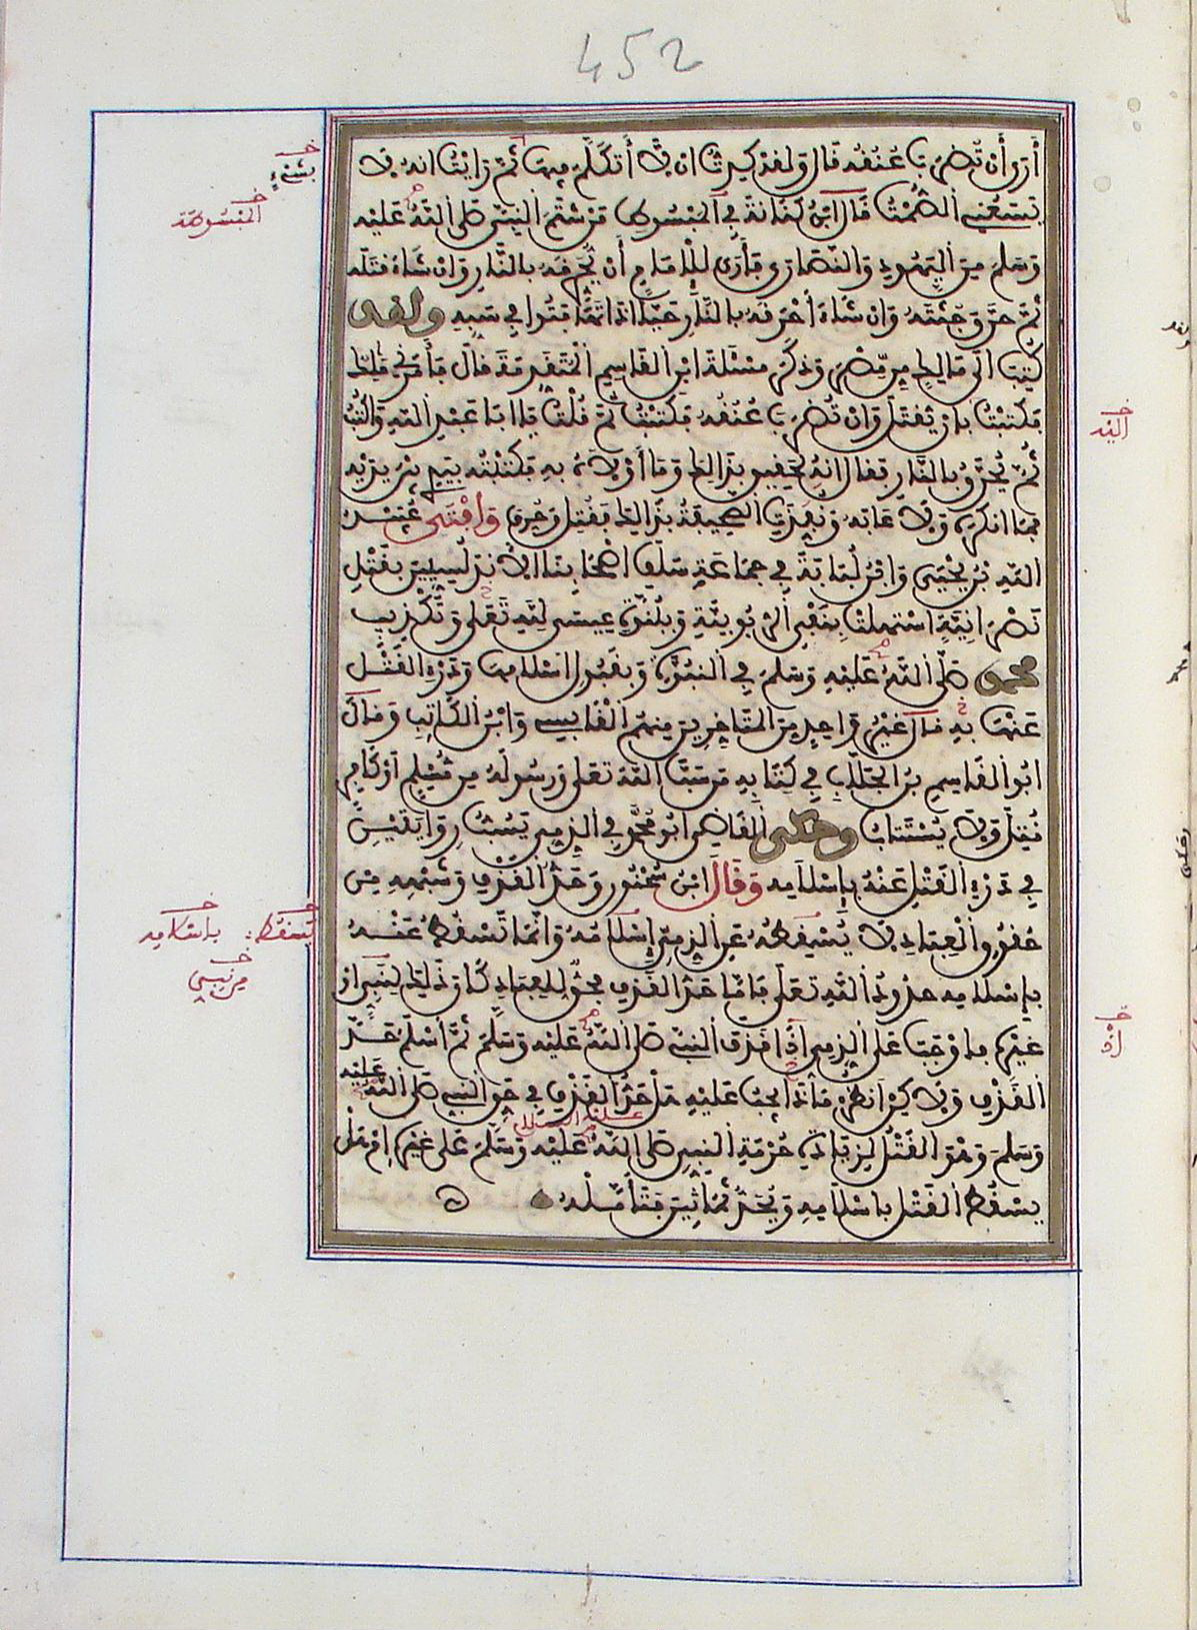 452
أرى أن تضرب عنقه قال ولقد كدت ان لا أتكلم فيها ثم رايت انه لا
يسعني الصمت قال ابن كنانة في المبسوط من شتم النبي صلى الله عليه
وسلم من اليهود والنصارى فأرى للإمام أن يحرقه بالنار وان شاء قتله
ثم حرق جثته وان شاء أحرقه بالنار حيا اذا تهافتوا في سبه ولقد
كتب الى مالك من مصر وذكر مسئلة ابن القاسم المتقدمة قال فأمرني مالك
فكتبت بان يقتل وان تضرب عنقه فكتبت ثم قلت يا ابا عبد الله واكتب
ثم يحرق بالنار فقال انه لحقيق بذلك وما أولاه به فكتبته بيدي بين يديه
فما انكره ولا عابه ونفذت الصحيفة بذلك فقتل وحرق وأفتى عبيد
الله بن يحيى وابن لبابة في جماعة سلف اصحابنا الأندلسيين بقتل
نصرانية استهلت بنفي الربوبية وبنوة عيسى لله تعلى وتكذيب
محمد صلى الله عليه وسلم في النبوة وبقبول اسلامها ودرء القتل
عنها به قال غير واحد من المتأخرين منهم القابسي وابن الكاتب وقال
ابو القاسم بن الجلاب في كتابه من سب الله تعلى ورسوله من مسلم أو كافر
قتل ولا يستتاب وحكى القاضي ابو محمد في الذمي يسب روايتين
في درء القتل عنه بإسلامه وقال ابن سحنون وحد القذف وشبهه من
حقوق العباد لا يسقطه عن الذمي إسلامه وانما تسقط عنه
بإسلامه حدود الله تعلى فاما حد القذف فحق للعباد كان ذلك لنبي او
غيره فاوجب على الذمي إذا قذف النبي صلى الله عليه وسلم ثم أسلم حد
القذف ولاكن انظر ماذا يجب عليه هل حد القذف في حق النبي صلى الله عليه
وسلم وهو القتل لزيادة حرمة النبي صلى الله عليه وسلم على غيره ام هل
يسقط القتل بإسلامه ويحد ثمانين فتأمله
بشيء
المبسوطة
اليه
تسقط باسلامه
من نبي
إذ